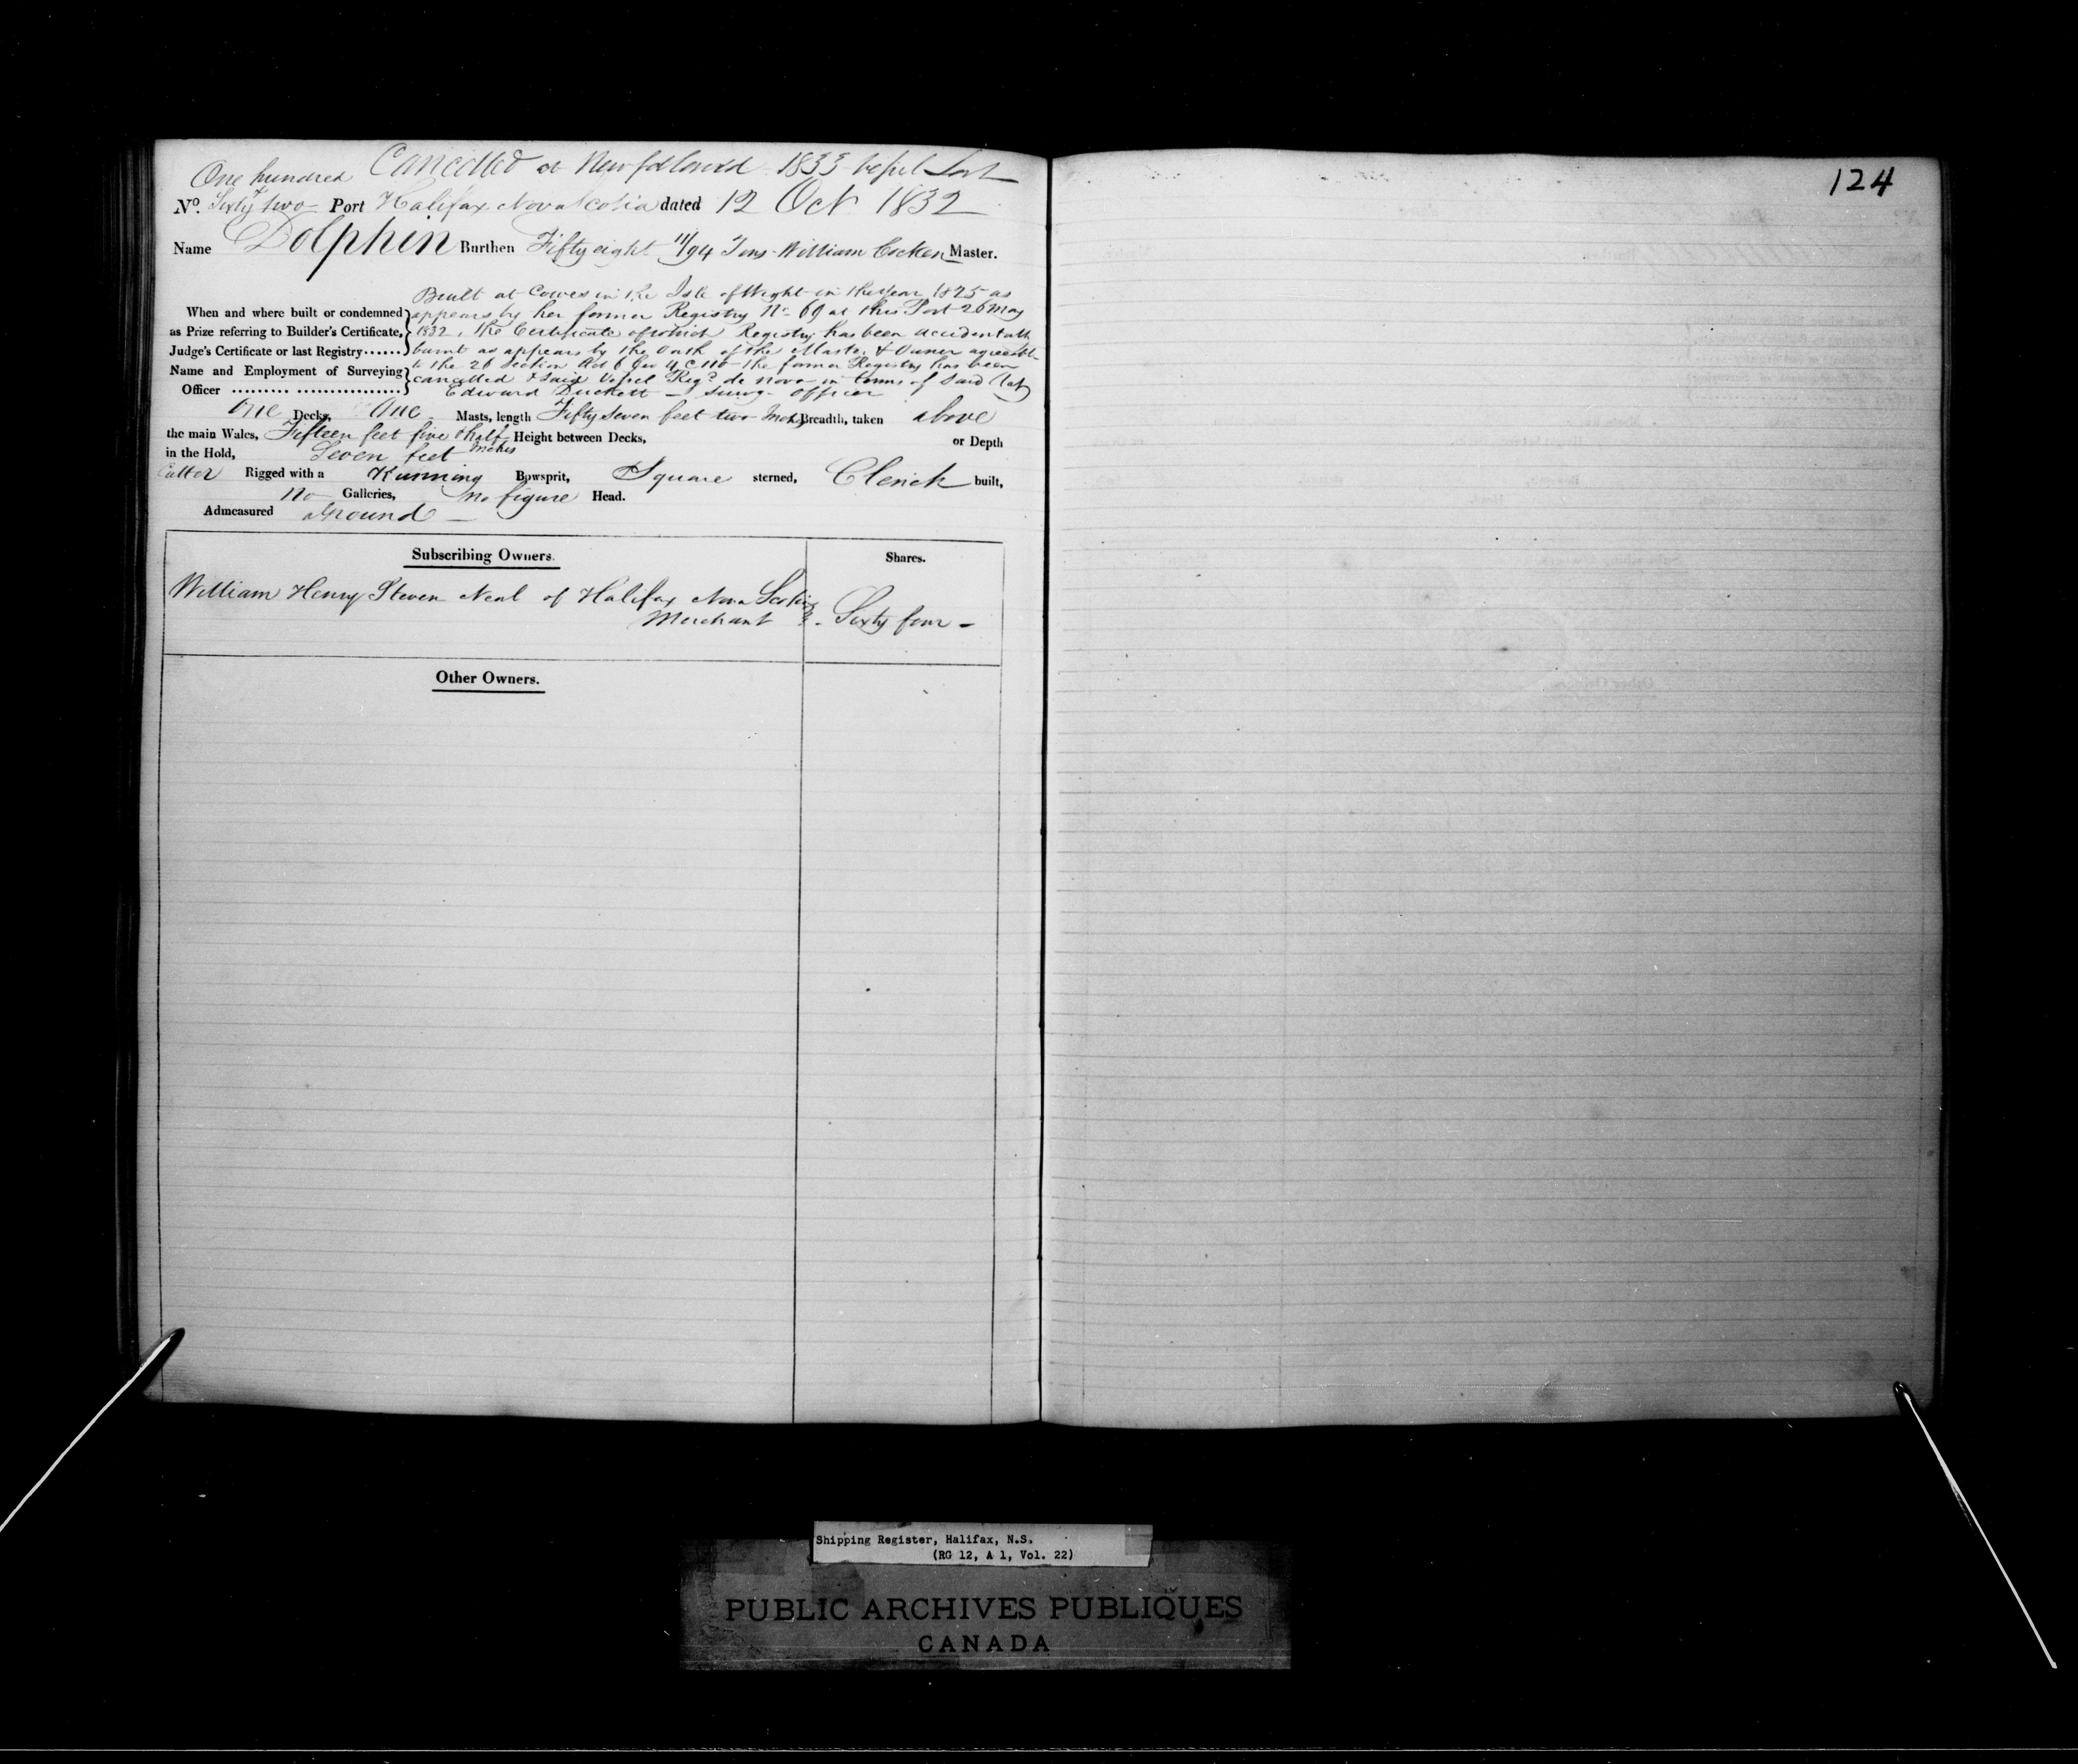 One hundred Cancelled at Newfoundland 1833 Vessel Lost
No. Sixty two Port Halifax Nova Scotia dated 12 Oct 1832
Name Dolphin Burthen Fifty eight 11/94 Tons William Cocken Master.
Built at Cowes in the Isle of Wight in the Year 1825 as
When and where built or condemned appears by her former Registry No 69 at this Port 26 May
as Prize referring to Builder's Certificate, 1832, the Certificate of which Registry has been accidentally
Judge's Certificate or last Registry...... burnt as appears by the Oath of the Master & Owner agreeable
to the 26 Section Act 6 Geo 4 C 110 the former Registry has been
Name and Employment of Surveying cancelled & said Vessel Regd de novo in terms of said Act
Officer ......... ................ Edward Duckett Survg Officer
One Decks, One Masts, length Fifty seven feet two Inches Breadth, taken above
the main Wales, Fifteen feet five & half Inches Height between Decks, or Depth
in the Hold, Seven feet
Cutter Rigged with a Running Bowsprit, Square sterned, Clench built,
no Galleries, no figure Head.
Admeasured aground
Subscribing Owners. Shares.
William Henry Steven Neal of Halifax Nova Scotia
Merchant - Sixty four -
Other Owners.
124
Shipping Register, Halifax, N.S.
(RG 12, A 1, Vol. 22)
PUBLIC ARCHIVES PUBLIQUES
CANADA